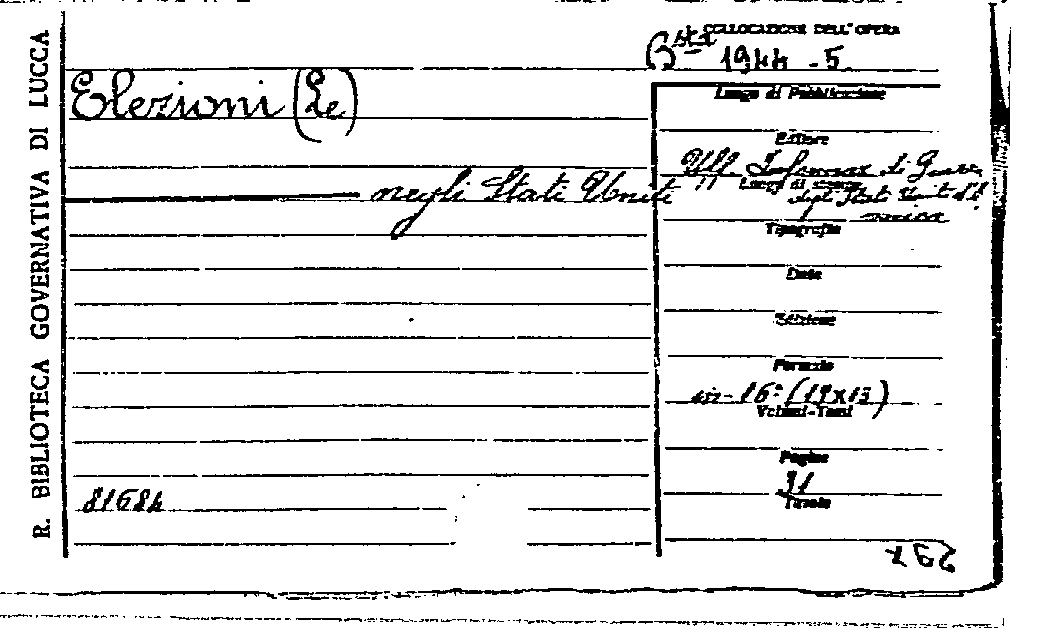 R. BIBLIOTECA GOVERNATIVA DI LUCCA
COLLOCAZIONE DELL'OPERA
Bsta 1944 - 5
Elezioni (Le)
negli Stati Uniti
Luogo di Pubblicazione
Editore
Uff. Informaz. di Guerra
Luogo di stampa
degli Stati Uniti d'A
merica
Tipografia
Data
Edizione
Formato
in-16° (19x13)
Volumi-Tomi
Pagine
31
Tavole
81684